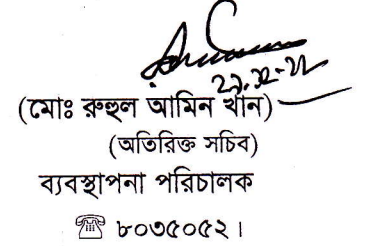 (মোঃ রুহুল আমিন খান)
(অতিরিক্ত সচিব)
ব্যবস্থাপনা পরিচালক
☏ ৮০৩৫০৫২।